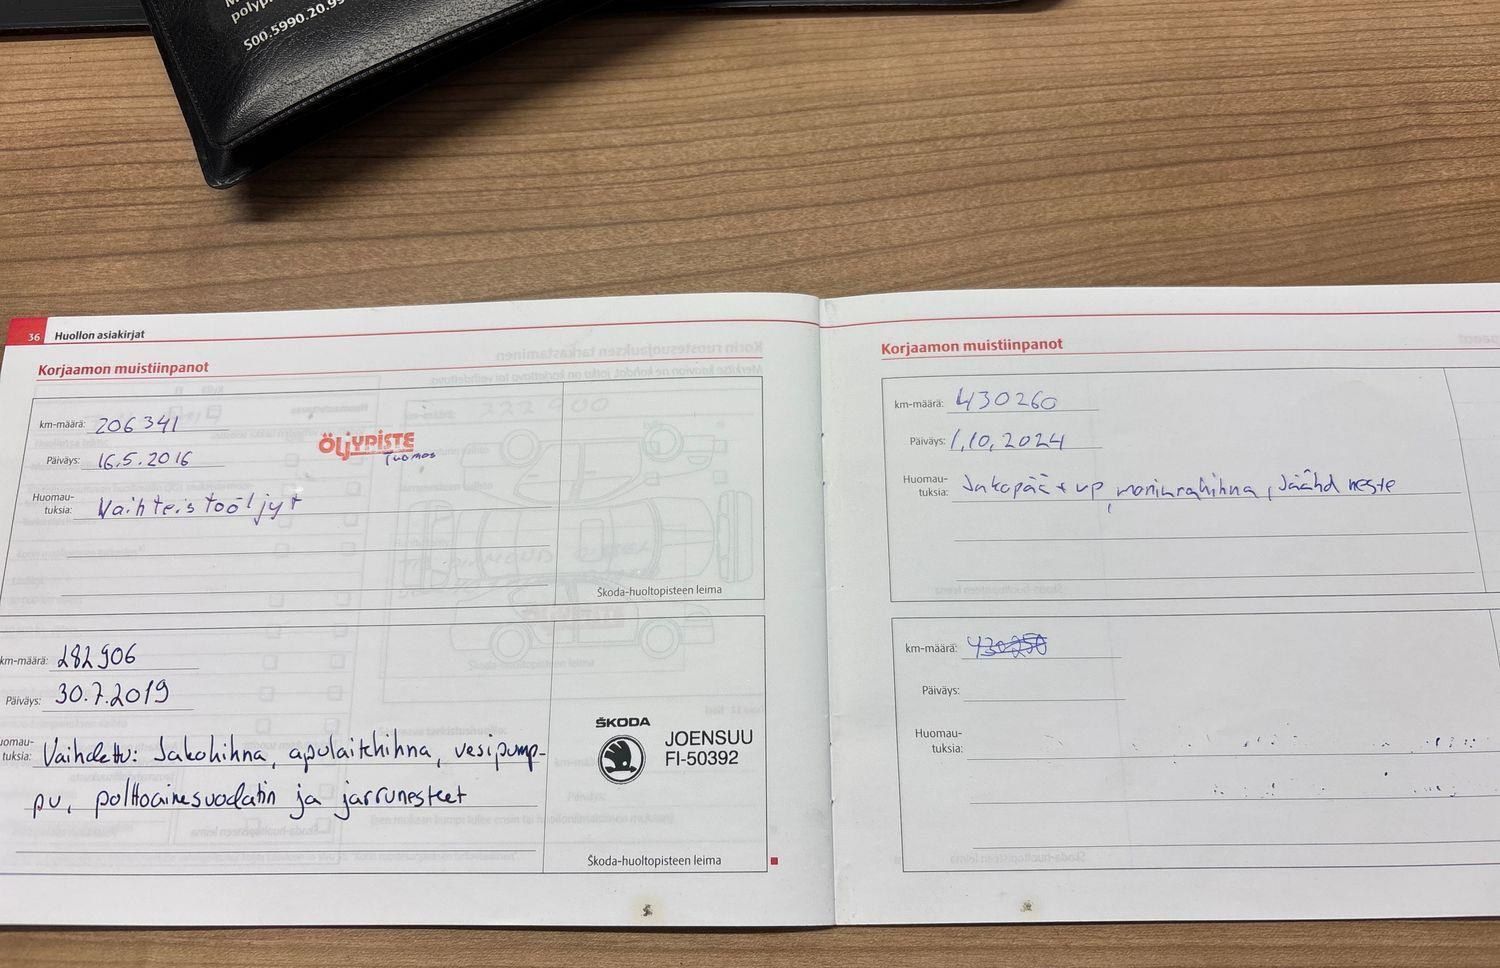 polyp
S00.5990.20.9
36 Huollon asiakirjat
Korjaamon muistiinpanot
km-määrä: 206 341
Päiväys: 16.5.2016
ÖLJYPISTE
Tuomas
Huomau-
tuksia: Vaihteistoöljyt
Škoda-huoltopisteen leima
km-määrä: 282 906
Päiväys: 30.7.2019
uomau-
tuksia: Vaihdettu: Jakohihna, apulaitehihna, vesipump-
pu, polttoainesuodatin ja jarrunesteet
ŠKODA
JOENSUU
FI-50392
Škoda-huoltopisteen leima
Korjaamon muistiinpanot
km-määrä: 430260
Päiväys: 1.10.2024
Huomau-
tuksia: Jakopää + vp, moniurahihna, Jäähd neste
km-määrä: 430250
Päiväys:
Huomau-
tuksia: